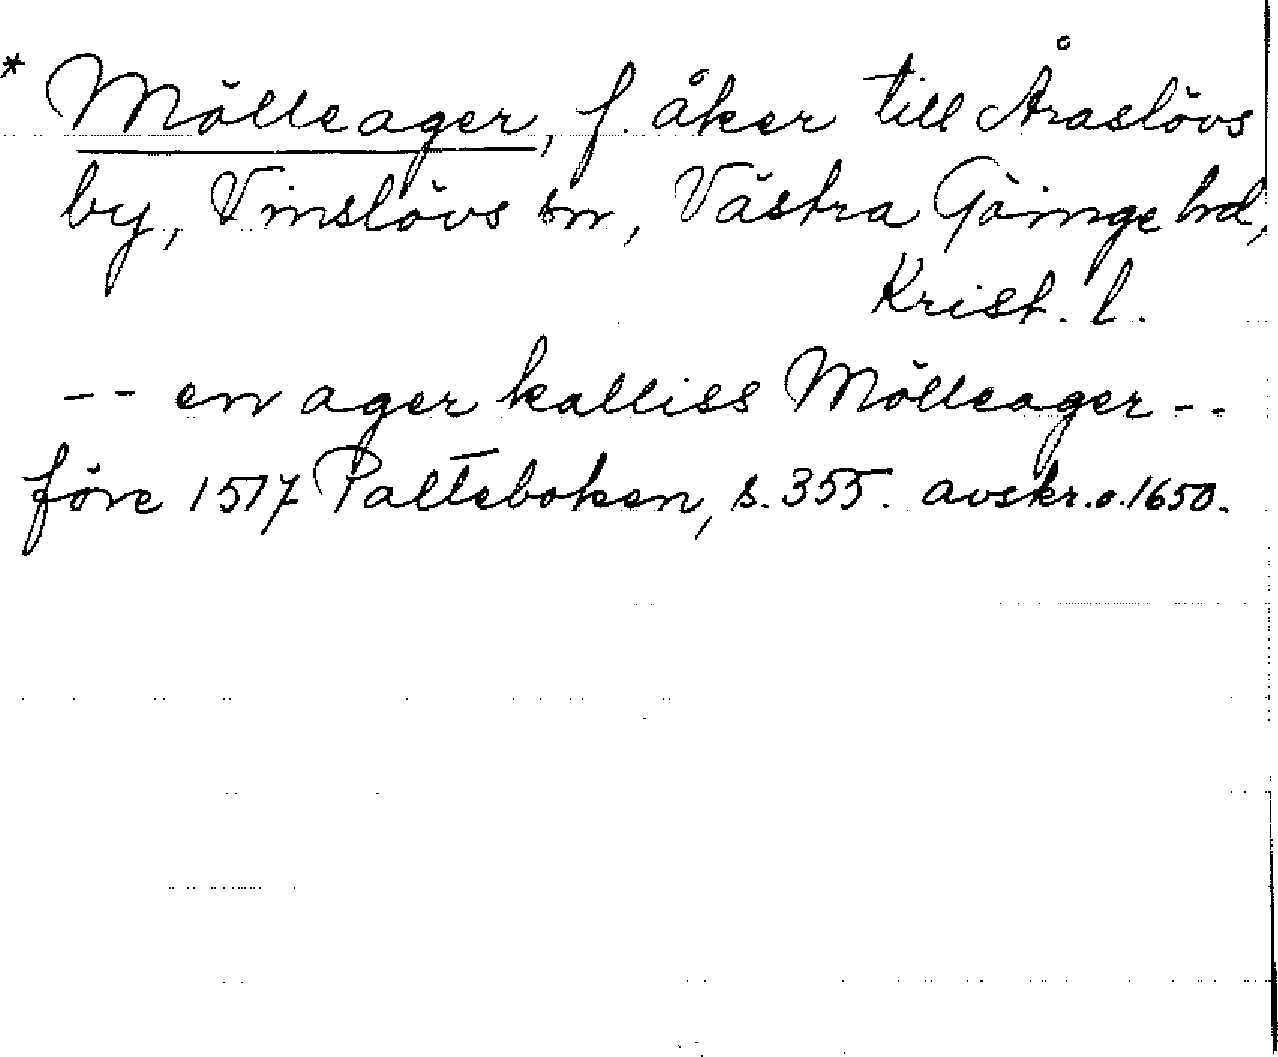 * Mölleager, f. åker till Åraslövs
by, Vinslövs sn, Västra Göinge hd,
Krist. l.
-- en ager kalliss Mölleager --
före 1517 Palteboken, s. 355. avskr. o. 1650.